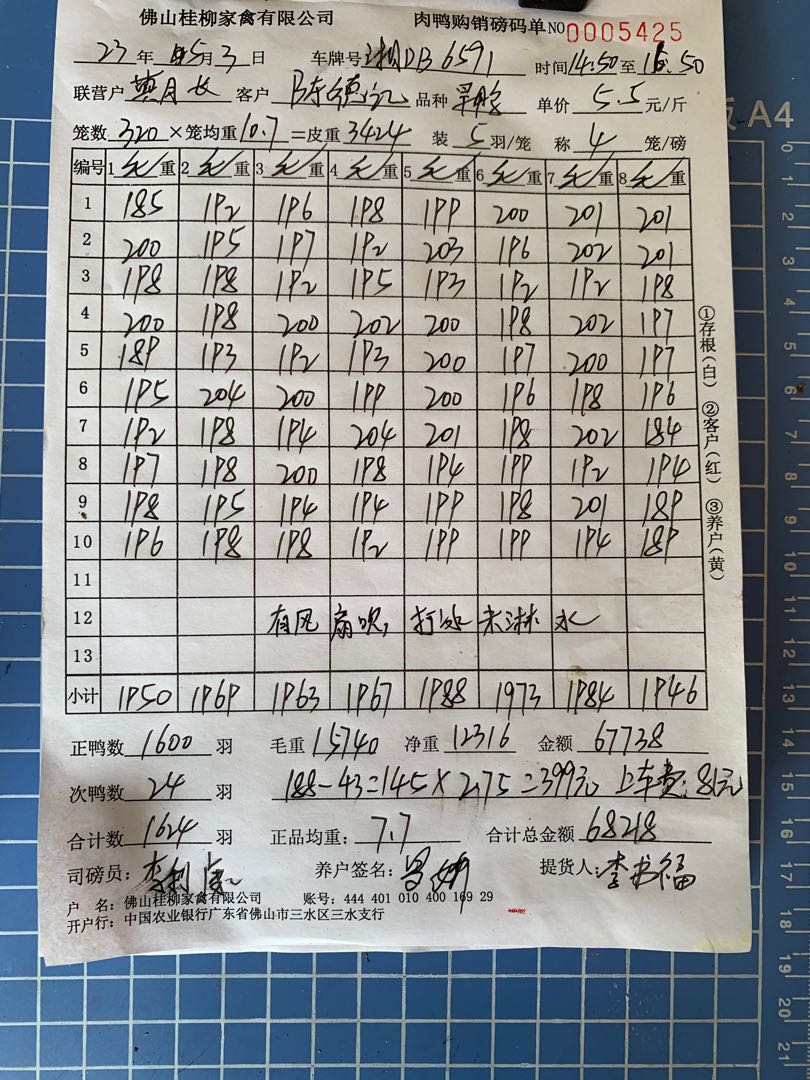 佛山桂柳家禽有限公司 肉鸭购销磅码单 NO 0005425
23年 5月3日 车牌号 湘DB6591 时间14:50至16:50
联营户 客户 陈德记 品种 单价 5.5 元/斤
笼数 320 ×笼均重 10.7 =皮重 3424 装 5 羽/笼 称 4 笼/磅
编号 1 毛/重 2 毛/重 3 毛/重 4 毛/重 5 毛/重 6 毛/重 7 毛/重 8 毛/重
1 185 192 196 198 199 200 201 201
2 200 195 197 192 203 196 202 201
3 198 198 192 195 193 192 192 198
4 200 198 200 202 200 198 202 197
5 189 193 192 193 200 197 200 197
6 195 204 200 199 200 196 198 196
7 192 198 194 204 201 198 202 184
8 197 198 200 198 194 199 192 194
9 198 195 194 194 199 198 201 189
10 196 198 198 192 199 199 194 189
11
12 有风扇吹, 打处未淋水
13
小计 1950 1969 1963 1967 1988 1973 1984 1946
正鸭数 1600 羽 毛重 15740 净重 12316 金额 67738
次鸭数 24 羽 188-43=145×2.75=399元 上车费:81元
合计数 1624 羽 正品均重: 7.7 合计总金额 68218
司磅员: 养户签名: 提货人: 李书福
户 名: 佛山桂柳家禽有限公司 账号: 444 401 010 400 169 29
开户行: 中国农业银行广东省佛山市三水区三水支行
①存根(白) ②客户(红) ③养户(黄)
A4
0
1
2
3
4
5
6
7
8
9
10
11
12
13
14
15
16
17
18
19
20
21